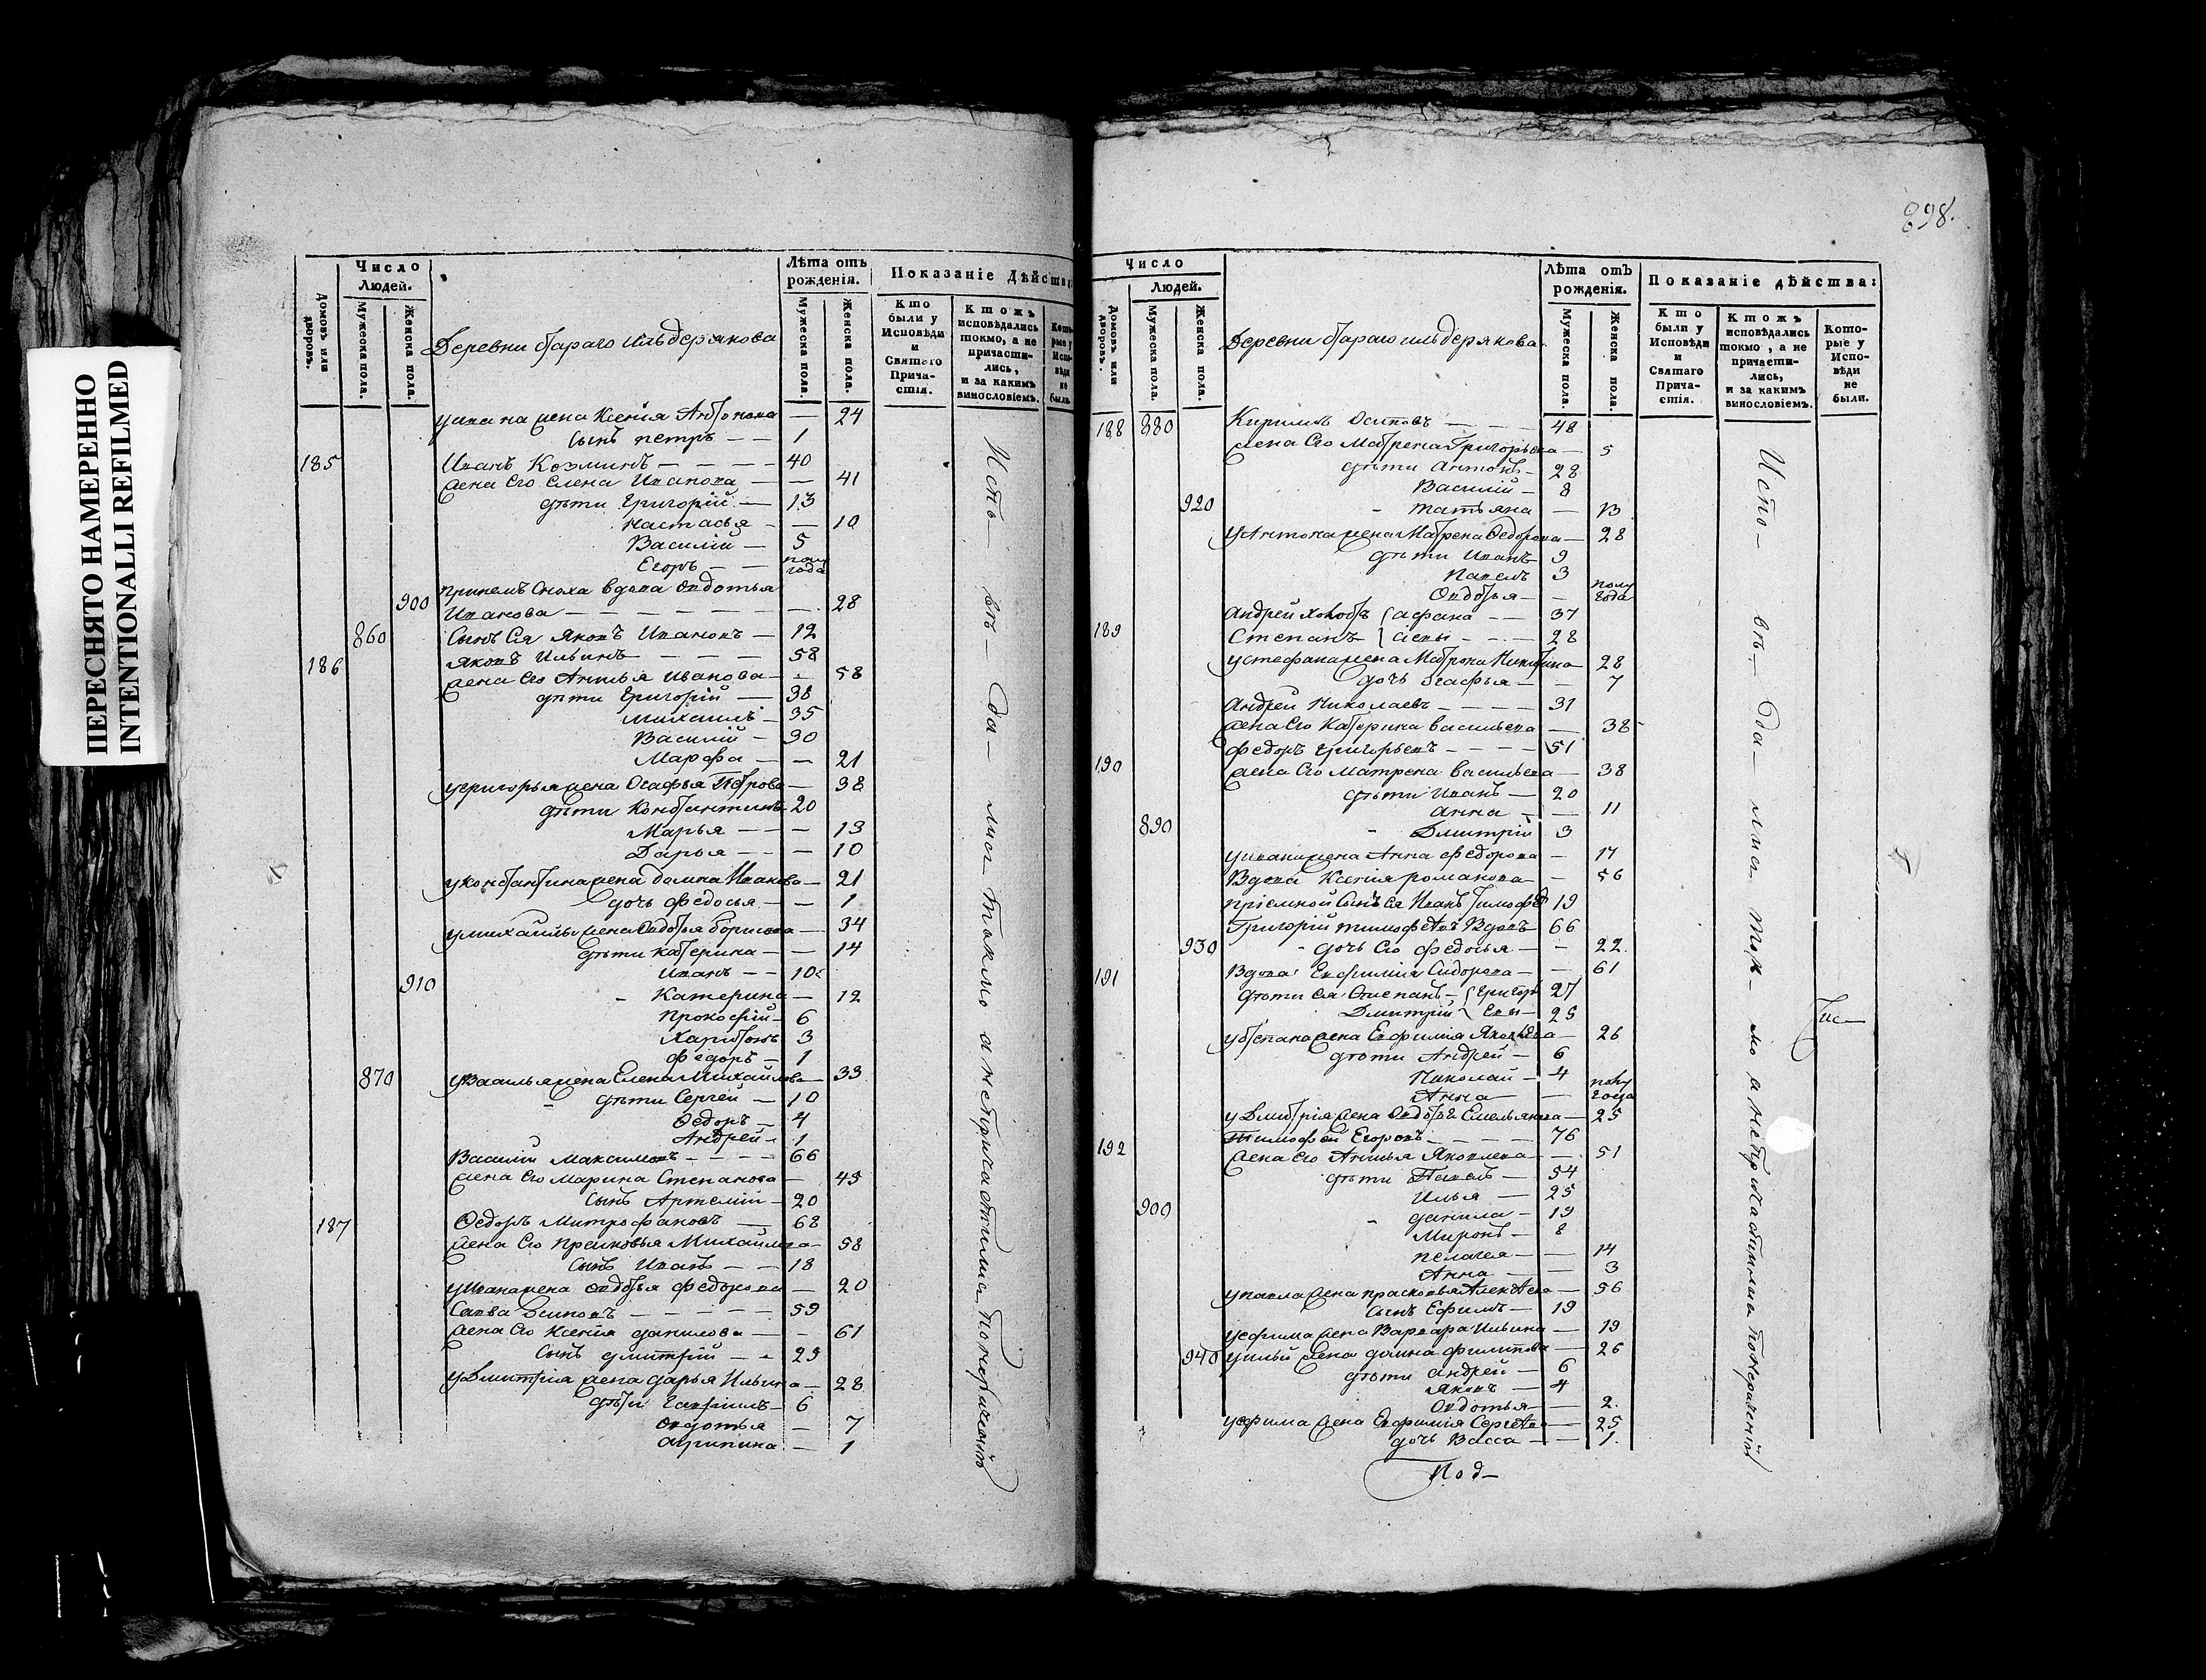 ПЕРЕСНЯТО НАМЕРЕННО
INTENTIONALLI REFILMED
Число
Людей.
Домовъ или дворовъ.
Мужеска пола.
Женска пола.
Деревни Стараго Ильдерякова
Лѣта отъ рожденія.
Мужеска пола.
Женска пола.
Показаніе дѣйства:
Кто были у Исповѣди и Святаго Прича- стія.
Ктожъ исповѣдались токмо, а не причасти- лись, и за какимъ винословіемъ.
у Ивана жена Ксенія Антонова — 24
сынъ Петръ — — 1
185 Иванъ Козминъ — — — — 40
жена Его Елена Иванова — — 41
дѣти Григорій — 13
Настасья — — 10
Василій — 5
Егоръ — — полу года
900 при немъ сноха вдова Овдотья
Иванова — — — — — — 28
860 Сынъ Ея Яковъ Ивановъ — 12
186 Яковъ Ильинъ — — — 58
жена Его Анисья Иванова — — 58
дѣти Григорій — 38
Михаилъ — 35
Василій — 30
Марфа — — 21
у Григорья жена Огафья Петрова — 38
дѣти Констинтинъ — 20
Марья — — — 13
Дарья — — — 10
у Константина жена Домна Иванова — 21
дочь Федосья — — 1
у Михайлы жена Овдотья Борисова — 34
дѣти Катерина — — 14
Иванъ — — 10
910 Катерина — 12
Прокофій — 6
Харитонъ 3
Федоръ — 1
870 у Василья жена Елена Михайлова — 33
дѣти Сергей — 10
Федоръ — 4
Андрей — 1
Василій Максимовъ — — — — 66
жена Его Марина Степанова — 45
Сынъ Артемій — 20
187 Федоръ Митрофановъ — 68
жена Его Прасковья Михайлова — 58
Сынъ Иванъ — — 18
у Ивана жена Овдотья Федорова — 20
Савва Осиповъ — — — — — 59
жена Его Ксенія Данилова — — 61
Сынъ Дмитрій — — 29
у Дмитрія жена Дарья Ильина — 28
дѣти Гаврилъ — 6
Овдотья — 7
Агрипина — 1
Испо— вѣ— да— лися токмо а не причастились по нерачению
298.
Число
Людей.
Домовъ или дворовъ.
Мужеска пола.
Женска пола.
Деревни Стараго Ильдерякова
Лѣта отъ рожденія.
Мужеска пола.
Женска пола.
Показаніе дѣйства:
Кто были у Исповѣди и Святаго Прича- стія.
Ктожъ исповѣдались токмо, а не причасти- лись, и за какимъ винословіемъ.
Кото- рые у Испо- вѣди не были.
188 880 Кирилъ Осиповъ — — — 48
жена Его Матрена Григорьева — 5
дѣти Антонъ — 28
Василій — 8
920 Татьяна — 13
у Антона жена Матрена Федорова — 28
дѣти Иванъ 9
Павелъ 3
Овдотья — — полу года
Андрей 37
189 Степанъ 28
у Степана жена Матрона Никитина 28
дочь Огафья — — 7
Андрей Николаевъ — — — — 31
жена Его Катерина Васильева — 38
Федоръ Григорьевъ — — — — 51
190 жена Его Матрена Васильева — 38
дѣти Иванъ — 20
Анна — — 11
890 Дмитрій 3
у Ивана жена Анна Федорова — 17
Вдова Ксенія Романова — — 56
пріемной Сынъ Ея Иванъ Тимофе 19
Григорій Тимофѣевъ Вдовъ 66
930 дочь Его Федосья — — 22.
191 Вдова Евфимія Сидорова — — 61
дѣти Ея Степанъ — 27
Дмитрій 25
у Степана жена Евфимія Яковлева — 26
дѣти Андрей — 6
Николай — 4
Анна — полу года
у Дмитрія жена Овдотья Емельянова — 25
Тимофей Егоровъ — — — — 76
192 жена Его Анисья Яковлева — — 51
дѣти Павелъ — 54
Илья — 25
900 Данила — 19
Миронъ — 8
Пелагея — — 14
Анна — — 3
у Павла жена Прасковья Алексѣева — 56
Сынъ Ефимъ — 19
у Ефима жена Варвара Ильина — 19
940 у Ильи жена Домна Филипова — 26
дѣти Андрей — 6
Яковъ — 4
Овдотья — — 2.
у Ефима жена Евфимія Сергѣева — 25
дочь Васса — — 1.
Испо— вѣ— да— лися ток— мо а не причастились по нерачению